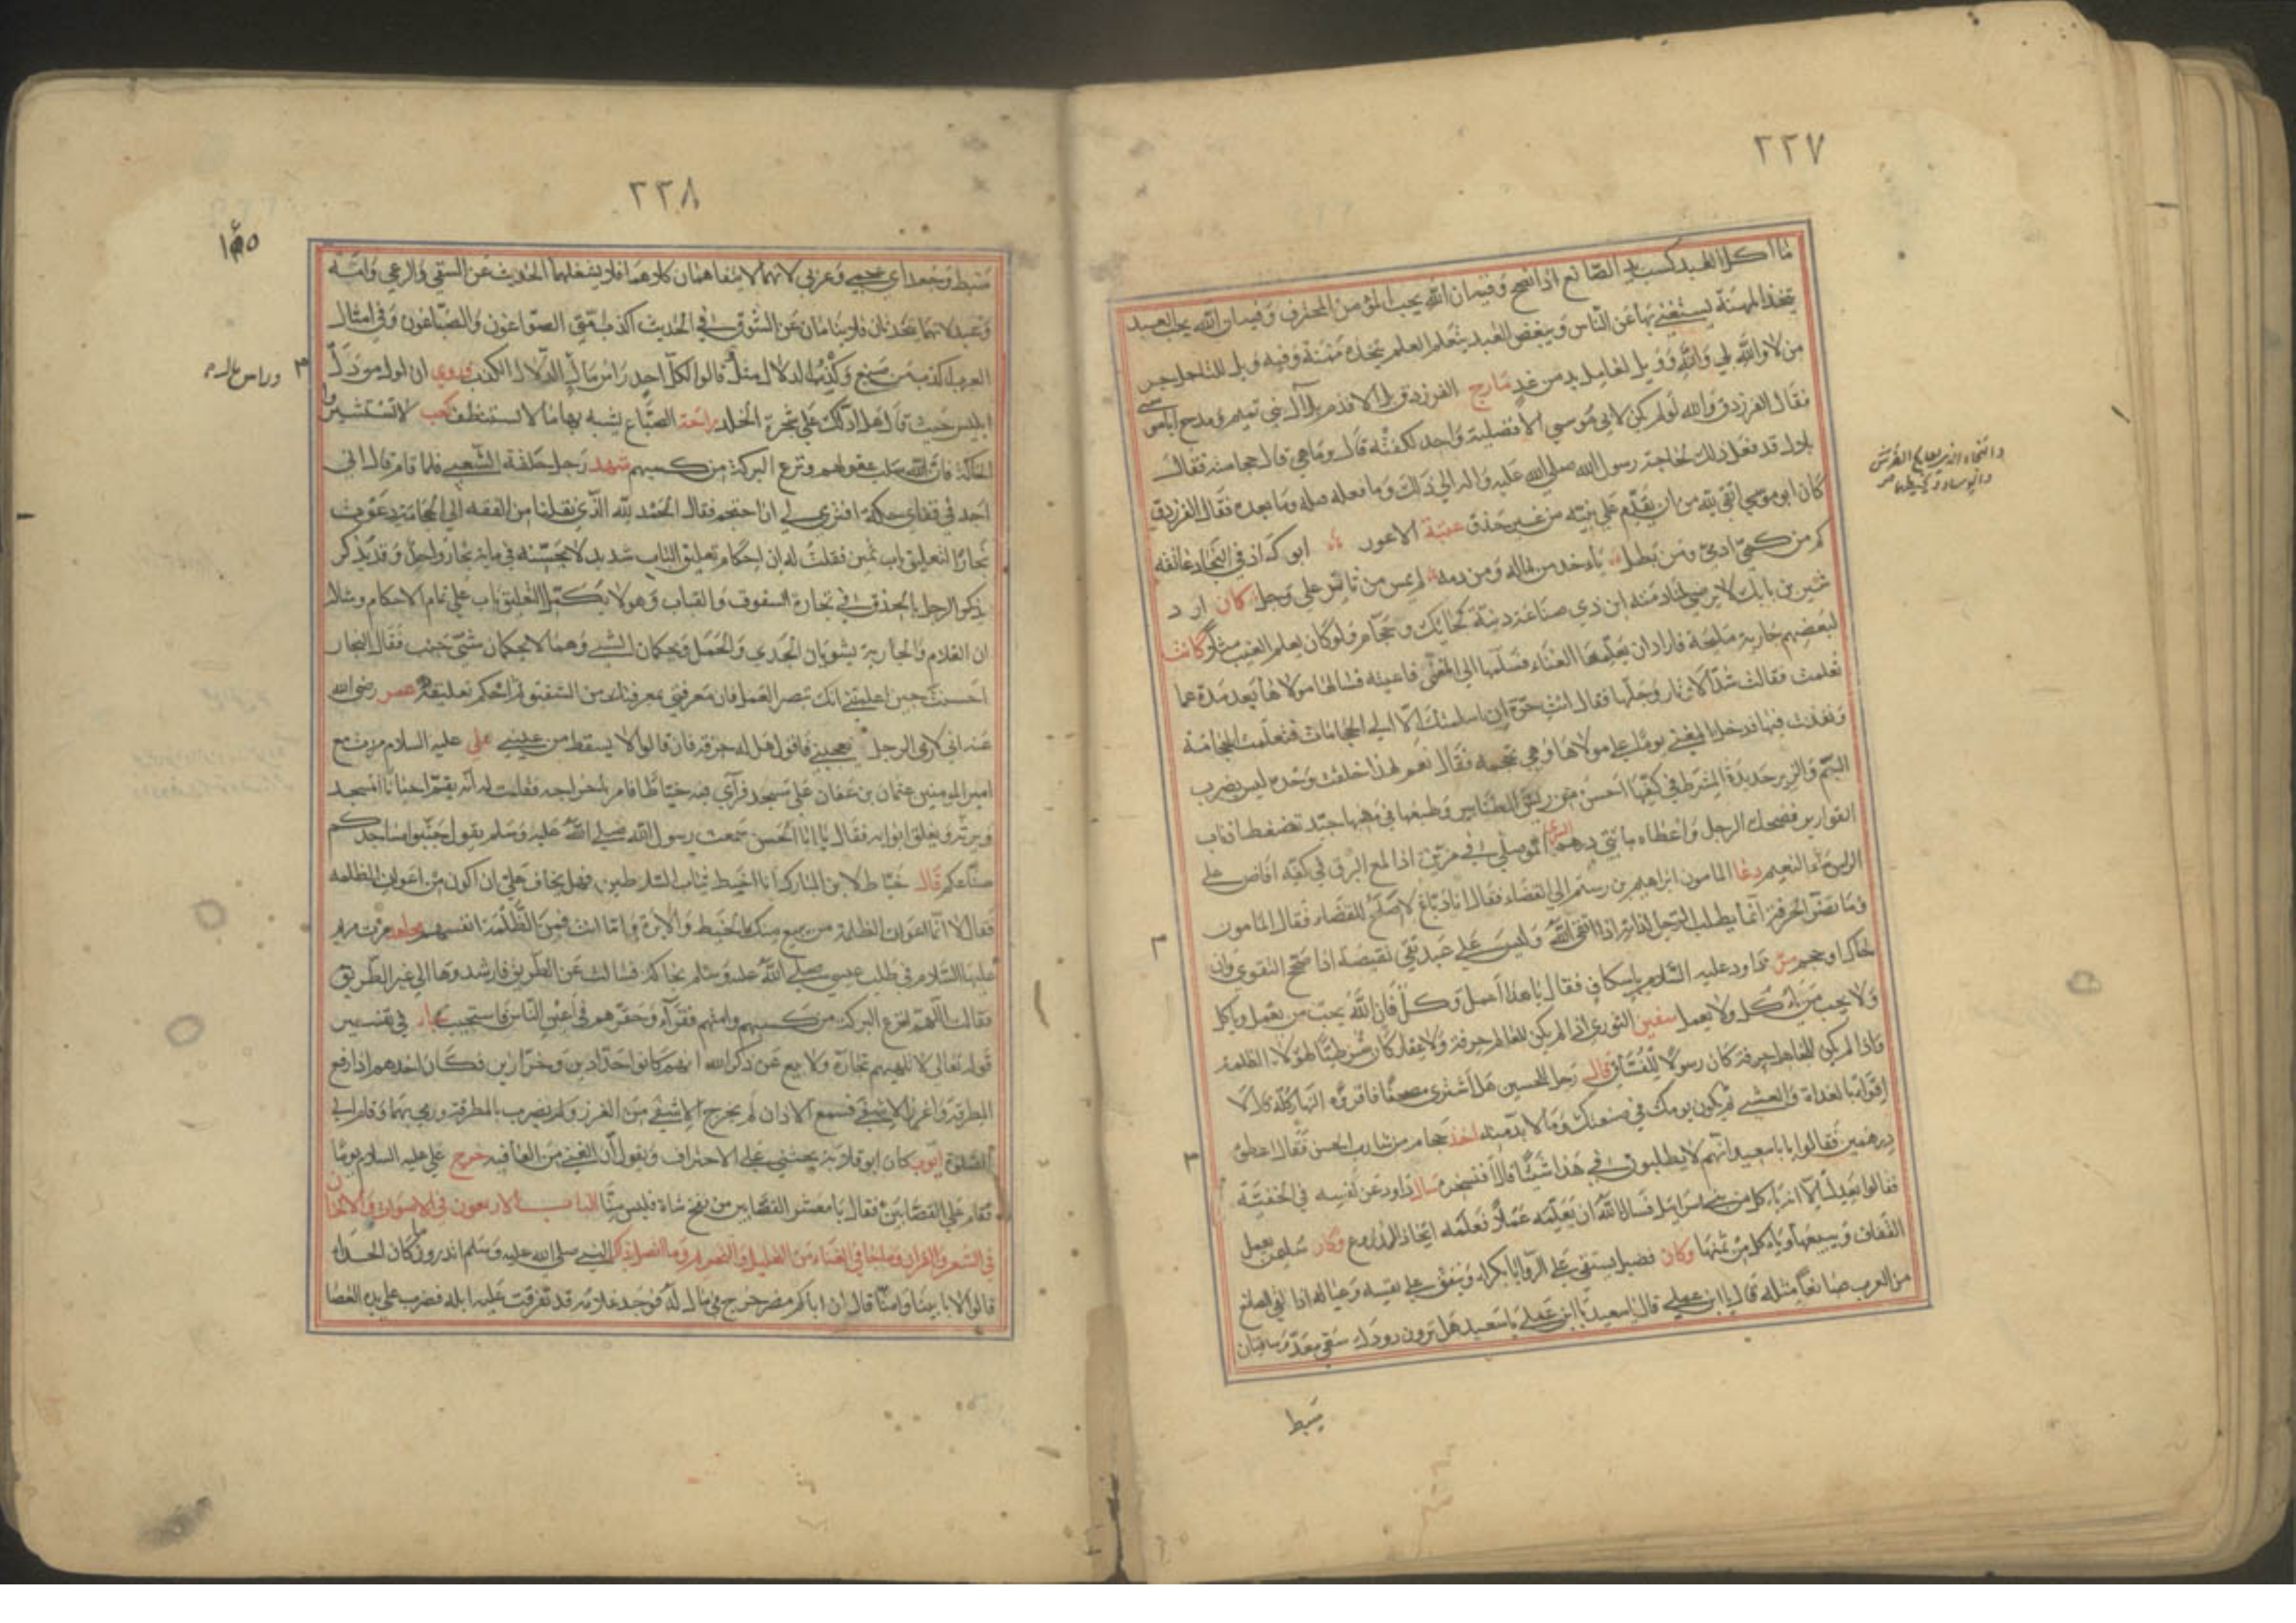 ٢٢٧
ما اكل العبد كسب يد الصانع اذا نصح وفيه ان الله يحب المؤمن المحترف وفيه ان الله يحب العبد
يتخذ المهنة ليستغني بها عن الناس ويبغض العبد يتعلم العلم يتخذه مهنة وفيه ويل للتاجر من
من لا والله بلى والله وويل للعامل يد من غد مازح الفرزدق بلال الاقدم بلال بني تميم ومدح اباموسى
فقال الفرزدق والله لو لم يكن لابي موسى الا فضلية واحد لكفته قال وما هي قال حجامته فقال
بلال قد فعل ذلك لحاجة رسول الله صلى الله عليه واله الى ذلك وما فعله قبله وما بعده فقال الفرزدق
كان ابو موسى اتقى لله من ان يقدم على نبيه من غير حذق عتبة الاعور ابوك اذ في النجاد عاتقه
كم من كمي ادمى ومن بطل ياخذ من ماله ومن دمه لم يمس من ثائر على وجل كان ارد
شير بن بابك لا يرضى لمنادمته ابن ذي صناعة دنية كحايك وحجام ولو كان يعلم الغيب مثلا كانت
لبعضهم جارية مليحة فاراد ان يعلمها الغناء فسلمها الى المغنى فاعيته فسالها مولاها بعد مدة عما
تعلمت فقالت شد الازار وحلها فقال انت حرة ان اسلمتك الا الى الحجامات فتعلمت الحجامة
ونفذت فيها فدخل المغني يوما على مولاها وهي تحجمه فقال نعم لهذا خلقت وحده ليس يضرب
البم والزير حديدة المشرط في كفها احسن من ريق الطنابير وطبعها في مهنها جيد تضغطا ذناب
القوارير فضحك الرجل واعطاه مايتي درهم السري الموصلي في مزين اذا لمع البرق في كفه افاض على
الراس ماء النعيم دعا المامون ابراهيم بن رستم الى القضاء فقال انا دباغ لا اصلح للقضاء فقال المامون
وما تضر الحرفة انما يطلب الرجل لفائز اذا اتقى الله وليس على عبد تقي نقيصة اذا صحح التقوى وان
حاك او حجم مر داود عليه السلام باسكاف فقال يا هذا اعمل وكل فان الله يحب من يعمل وياكل
ولا يحب من ياكل ولا يعمل سفين الثوري اذا لم يكن للعالم حرفة ولا عقار كان شرطيا لهولاء الظلمة
واذا لم يكن للجاهل حرفة كان رسولا للفساق قال رجل للحسن هل اشترى مصحفا فاقروه النهار كله قال لا
اقراه بالغداة والعشي ثم يكون يومك في صنعتك وما لا بد منه اخذ حجام من شارب الحسن فقال اعطوه
درهمين فقالوا يابا سعيد انهم لا يطلبون في هذا شيئا قال افنسخره سال داود عن نفسه في الخفية
فقالوا يعدل الا انه ياكل من بني اسرايل فسال الله ان يعلمه عملا فعلمه اتخاذ الدروع وكان سليمن يعمل
القفاف ويبيعها وياكل من ثمنها وكان فضيل يستقي على الروايا بكراء وينفق على نفسه وعياله اذا لقي الصانع
من العرب صانعا مثله قال يا ابن عملي قال سعيد يا ابن عملي يا سعيد هل ترون رودك سقى معد وساقيان
سبط
دانتخاذ الدرع
٢٢٨
١٥٥
سبط وجعد اي عجمي وعربي لانهما لا يتفاهمان كلامهما فلا يشغلهما الحديث عن السقي والرعي وامه
وعبد لانهما يتحدثان فلا ينامان عن السوق في الحديث اكذب امتي الصواغون والصباغون وفي امثال
العرب اكذب من صنع وكذب الدلال مثل قالوا لكل احد راس مال الدلال الكذب وروي ان اول من دل
ابليس حيث قال هل ادلك على شجرة الخلد رايحة الصباغ يشبه بها ما لا يستنظف كعب لا تستشيروا
الحاكة فان الله سلب عقولهم ونزع البركة من كسبهم شهد رجل حلقة الشعبي فلما قام قال اني
اجد في قفاي حكة افترى لي ان احتجم فقال الحمد لله الذي نقلنا من الفقه الى الحجامة دعوت
نجارا لتعليق باب ثمين فقلت له ان احكام تعليق الباب شديد لا يحسنه في ماية نجار واحد وقد يذكر
يذكر الرجل بالحذق في نجارة السقوف والقباب وهو لا يكمل لتعليق باب على تمام الاحكام ومثلا
ان الغلام والجارية يشويان الجدي والحمل ويحكمان الشي وهما لا يحكمان شيّ جنب فقال النجار
احسنت حين اعلمتني انك تبصر العمل فان معرفتي بمعرفتك من التفقه ثم احكم تعليقه عمر رضي الله
عنه اني لارى الرجل فيعجبني فاقول هل له حرفة فان قالوا لا سقط من عيني علي عليه السلام مررت مع
امير المومنين عثمان بن عفان على مسجد فرآى فيه خياطا فامر باخراجه فقلت له انه يقم احيانا المسجد
ويرش ويغلق ابوابه فقال يا ابا الحسن سمعت رسول الله صلى الله عليه وسلم يقول جنبوا مساجدكم
صناعكم قال خياط لابن المبارك انا اخيط ثياب السلاطين فهل يخاف علي ان اكون من اعوان الظلمه
فقال لا انما اعوان الظلمة من يبيع منك الخيط والابرة واما انت فمن الظلمة انفسهم مجاهد مرت مريم
عليها السلام في طلب عيسى صلى الله عليه وسلم بحاكة فسالت عن الطريق فارشدوها الى غير الطريق
فقالت اللهم انزع البركة من كسبهم وامتهم فقراء وحقرهم في اعين الناس فاستجيب مجاهد في تفسير
قوله تعالى لا تلهيهم تجارة ولا بيع عن ذكر الله انهم كانوا حدادين وخرازين فكان احدهم اذا رفع
المطرقة واغرز الاشفى فسمع الاذان لم يخرج الاشفى من الغرز ولم يضرب بالمطرقة ورمى بهما وقام الى
الصلوة ايوب كان ابو قلابة يحثني على الاحتراف ويقول ان الغنى من العافيه خرج علي عليه السلام يوما
فقام على القصابين فقال يا معشر القصابين من نفخ شاة فليس منا الباب الاربعون في الاصوات والالحان
في الشعر والقران وما جا في الغناء من التحليل والتحريم وما اتصل بذلك النبي صلى الله عليه وسلم اتدرون ما كان الحداء
قالوا لا بابينا وامنا قال ان اباكم مضر خرج في مال له فوجد غلامه قد تفرقت عليه ابله فضرب على يده بالعصا
وراس ماله